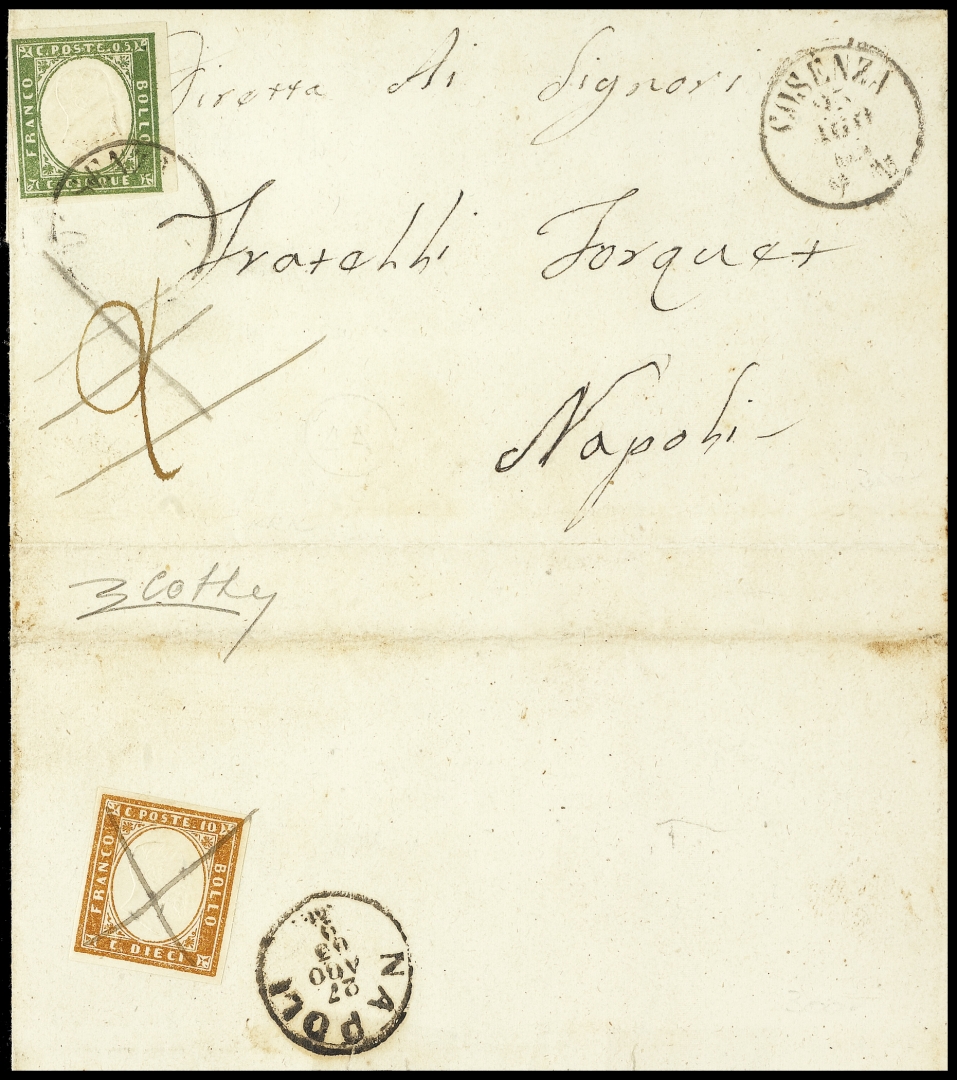 C. POSTE. 05
FRANCO
BOLLO
C. CINQUE
Diretta Alli Signori
COSENZA
AGO
Fratelli Forquet
2
Napoli
C. POSTE. 10
FRANCO
BOLLO
C. DIECI
NAPOLI
27
AGO
63